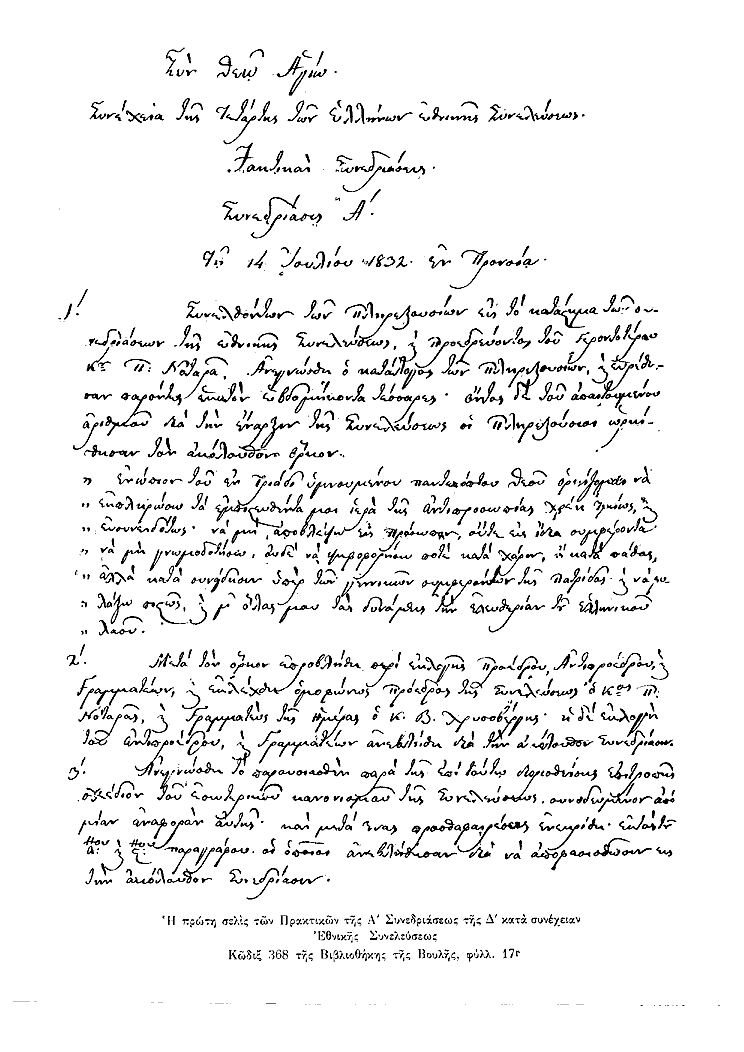 Σὺν Θεῷ Ἁγίῳ.
Συνέχεια τῆς Τετάρτης τῶν Ἑλλήνων Ἐθνικῆς Συνελεύσεως.
Τακτικαὶ Συνεδριάσεις.
Συνεδρίασις Α΄.
Τῇ 14 Ἰουλίου 1832. ἐν Προνοίᾳ.
1. Συνελθόντων τῶν Πληρεξουσίων εἰς τὸ κατάστημα τῶν συ-
νεδριάσεων τῆς ἐθνικῆς Συνελεύσεως, ὑ προεδρεύοντος τοῦ γεροντοτέρου
Κου Π: Νοταρᾶ, Ἀνεγνώσθη ὁ κατάλογος τῶν πληρεξουσίων, καὶ εὑρέθη-
σαν παρόντες ἑκατὸν ἑβδομήκοντα τέσσαρες. ὄντος δὲ τοῦ ἀπαιτουμένου
ἀριθμοῦ διὰ τὴν ἔναρξιν τῆς Συνελεύσεως οἱ Πληρεξούσιοι ὡρκί-
σθησαν τὸν ἀκόλουθον ὅρκον.
„ Ἐνώπιον τοῦ ἐν Τριάδι ὑμνουμένου παντεπόπτου Θεοῦ ὁρκίζομαι νὰ
„ ἐκπληρώσω τὰ ἐμπιστευθέντα μοι ἱερὰ τῆς ἀντιπροσωπείας χρέη
„ εὐσυνειδότως. νὰ μὴν ἀποβλέψω εἰς πρόσωπον, οὔτε εἰς ἴδια συμφέροντα
„ νὰ μὴ γνωμοδοτήσω, οὐδὲ νὰ ψηφοφορήσω ποτὲ κατὰ χάριν, ἢ κατὰ πάθος,
„ ἀλλὰ κατὰ συνείδησιν ὑπὲρ τῶν γενικῶν συμφερόντων τῆς πατρίδος. καὶ νὰ φυ-
„ λάξω πιστῶς, καὶ μ' ὅλας μου τὰς δυνάμεις τὴν ἐλευθερίαν τοῦ ἑλληνικοῦ
„ λαοῦ.
2. Μετὰ τὸν ὅρκον ἐπροβλήθη περὶ ἐκλογῆς προέδρου, Ἀντιπροέδρου, καὶ
Γραμματέων, καὶ ἐκλέχθη ὁμοφώνως πρόεδρος τῆς Συνελεύσεως ὁ Κος Π:
Νοταρᾶς, καὶ Γραμματεὺς τῆς ἡμέρας ὁ Κ. Β. Χρυσοβέργης. ἡ δὲ ἐκλογὴ
τοῦ ἀντιπροέδρου, καὶ Γραμματέων ἀνεβλήθη διὰ τὴν ἀκόλουθον Συνεδρίασιν.
3. Ἀνεγνώσθη τὸ παρουσιασθὲν παρὰ τῆς ἐπὶ τούτῳ διορισθείσης ἐπιτροπῆς
σχέδιον τοῦ ἐσωτερικοῦ κανονισμοῦ τῆς Συνελεύσεως, συνοδευμένον ἀπὸ
μίαν ἀναφορὰν αὐτῆς. καὶ μετά τινας προσθαφαιρέσεις ἐνεκρίθη. ἐκτὸς τῶν
παραγράφου. οἱ ὁποῖοι ἀνεβλήθησαν διὰ νὰ ἀποφασισθῶσιν εἰς
τὴν ἀκόλουθον Συνεδρίασιν.
Ἡ πρώτη σελὶς τῶν Πρακτικῶν τῆς Α΄ Συνεδριάσεως τῆς Δ΄ κατὰ συνέχειαν
Ἐθνικῆς Συνελεύσεως
Κῶδιξ 368 τῆς Βιβλιοθήκης τῆς Βουλῆς, φύλλ. 17r